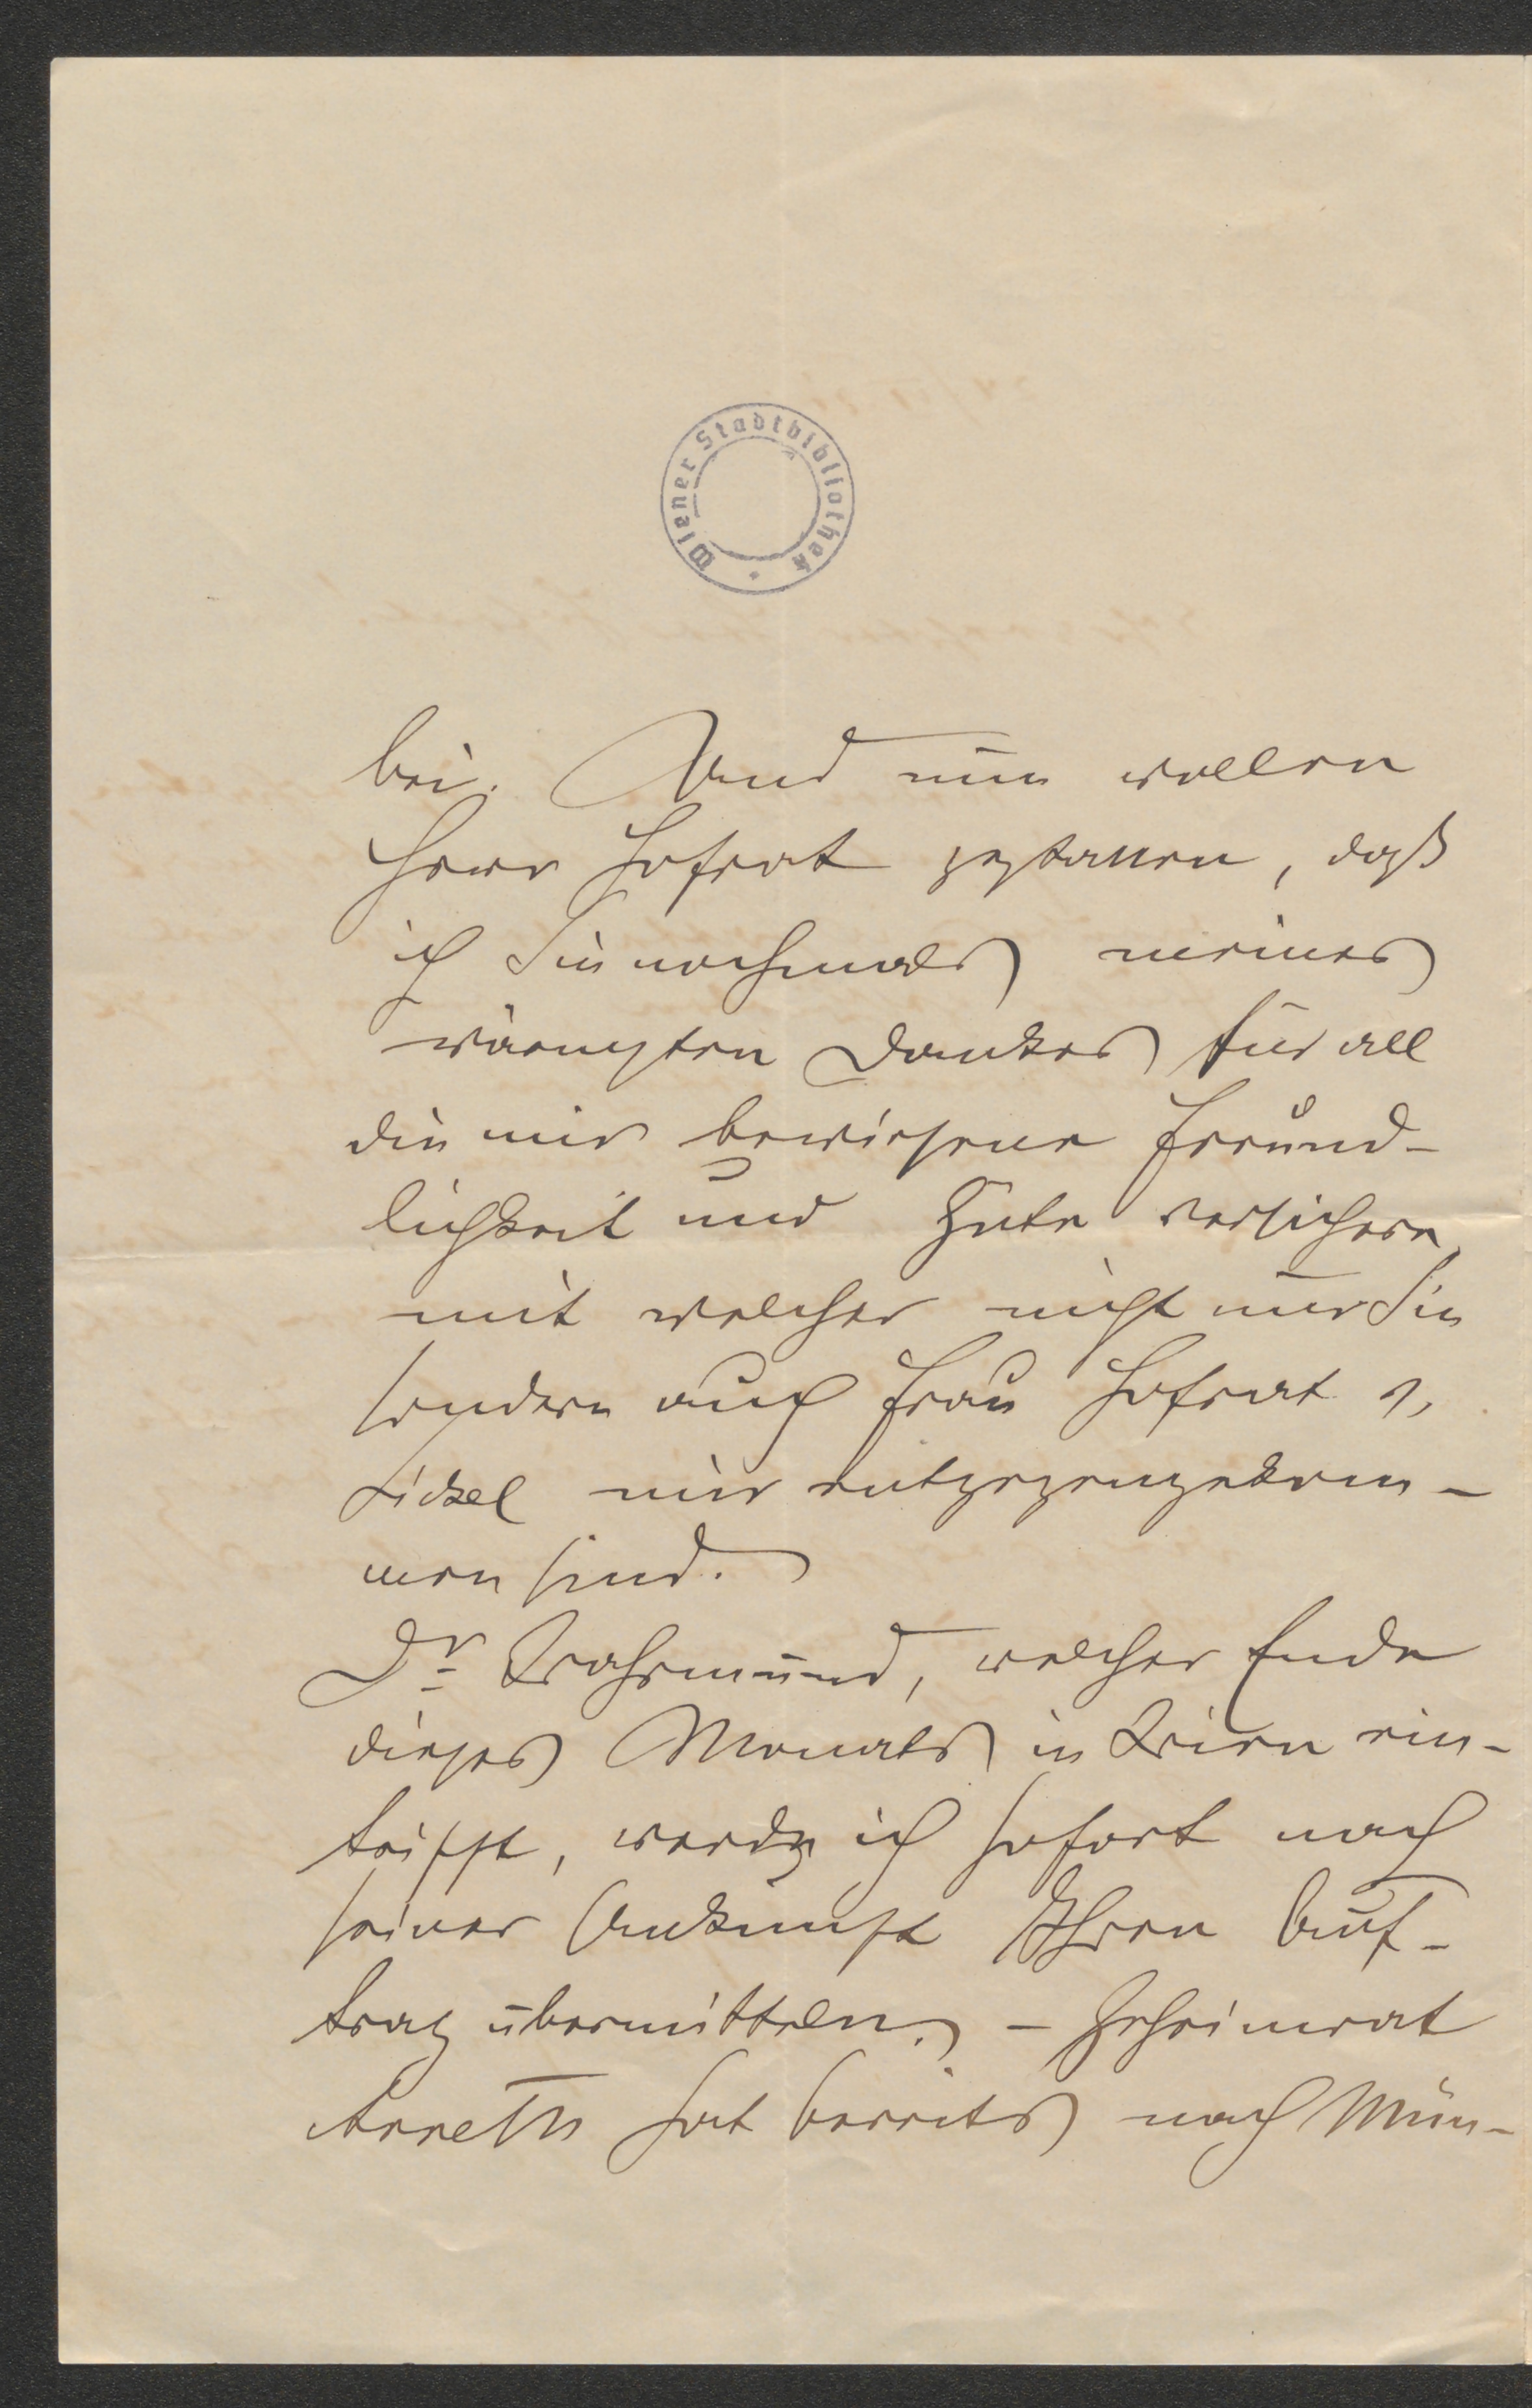 Wiener Stadtbibliothek
bei. Und nun wollen
Herr Hofrat gestatten, daß
ich Sie nochmals meines
wärmsten Dankes für all
die mir bewiesene Freund-
lichkeit und Güte versichere,
mit welcher nicht nur Sie
sondern auch Frau Hofrat v.
Sickel mir entgegengekom-
men sind.
Dr. Wahrmund, welcher Ende
dieses Monats in Wien ein-
trifft, werde ich sofort nach
seiner Ankunft Ihren Auf-
trag übermitteln. - Geheimrat
Arneth hat bereits nach Mün-